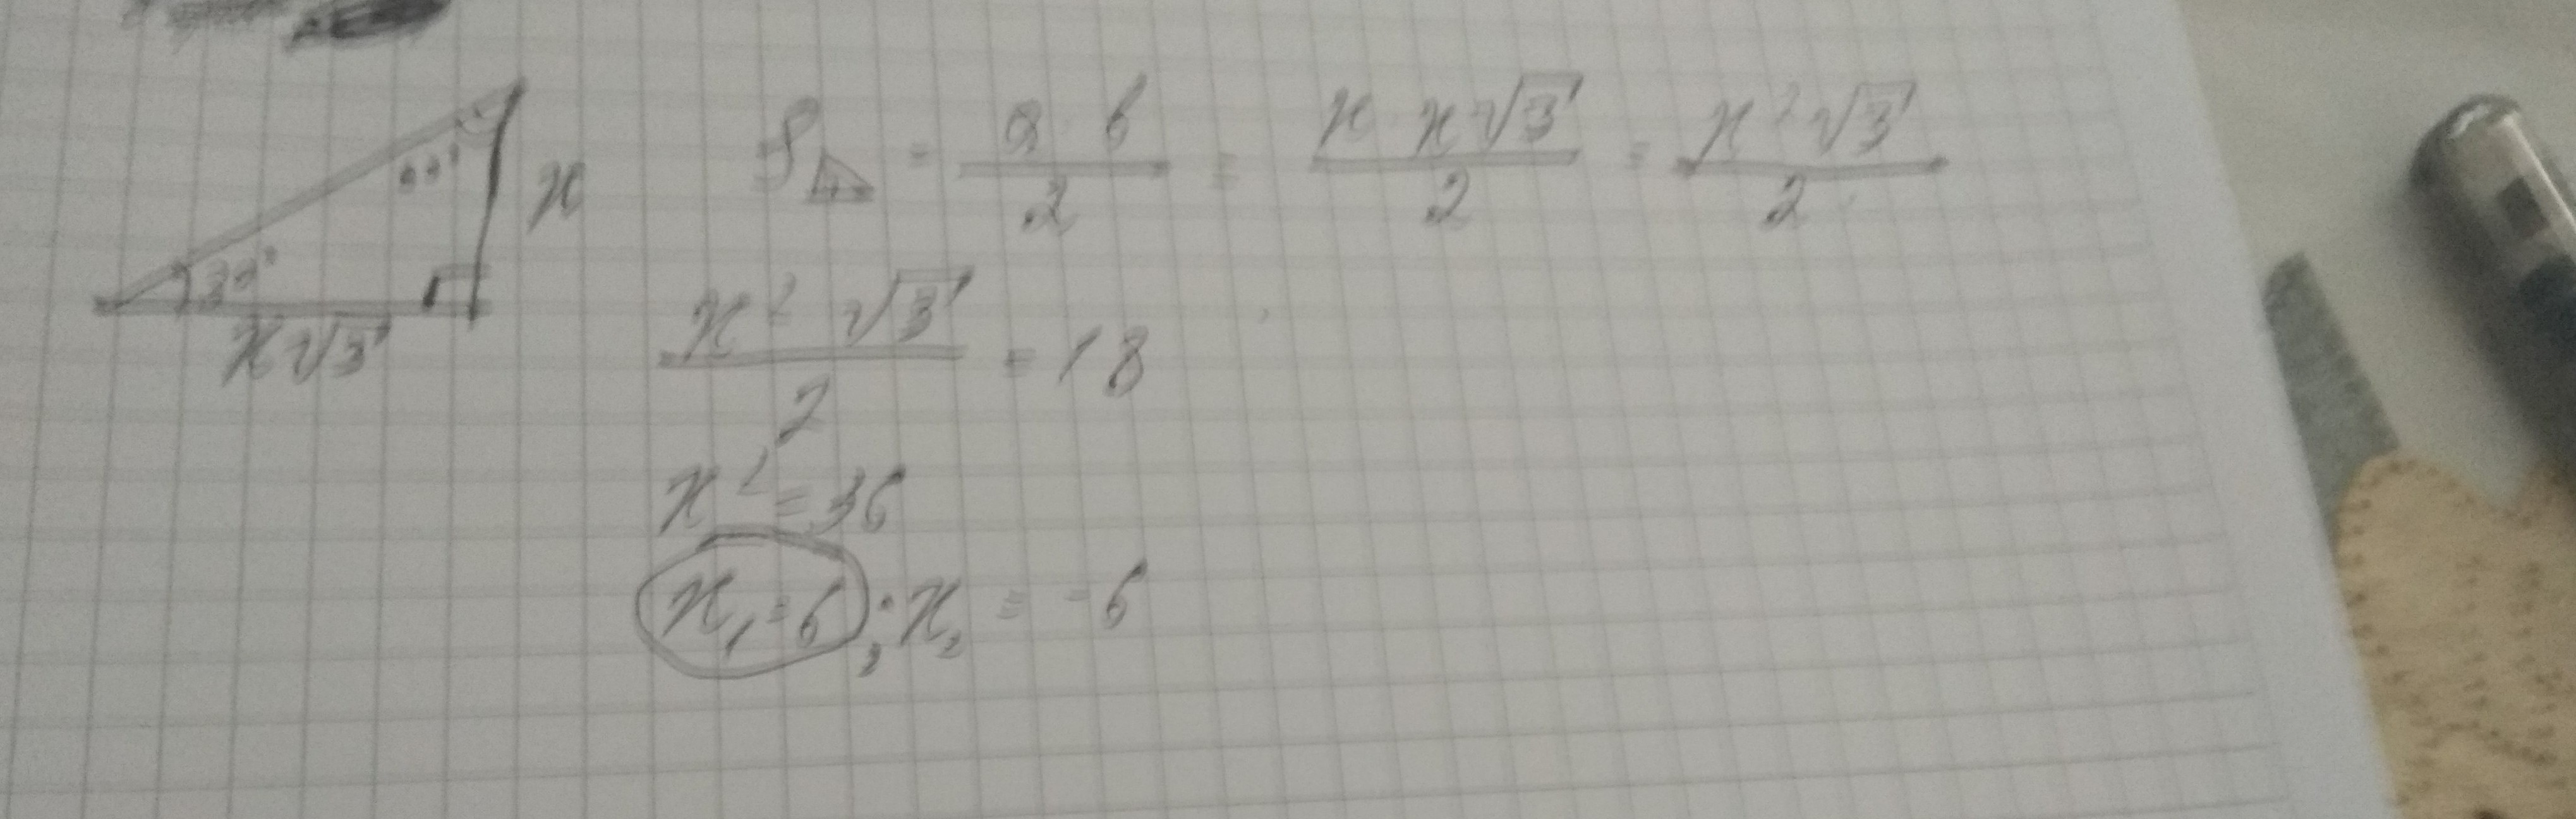 60°
x
30°
x√3
S = a · b / 2 = x · x√3 / 2 = x²√3 / 2
x²√3 / 2 = 18
x² = 36
x₁ = 6 ; x₂ = -6